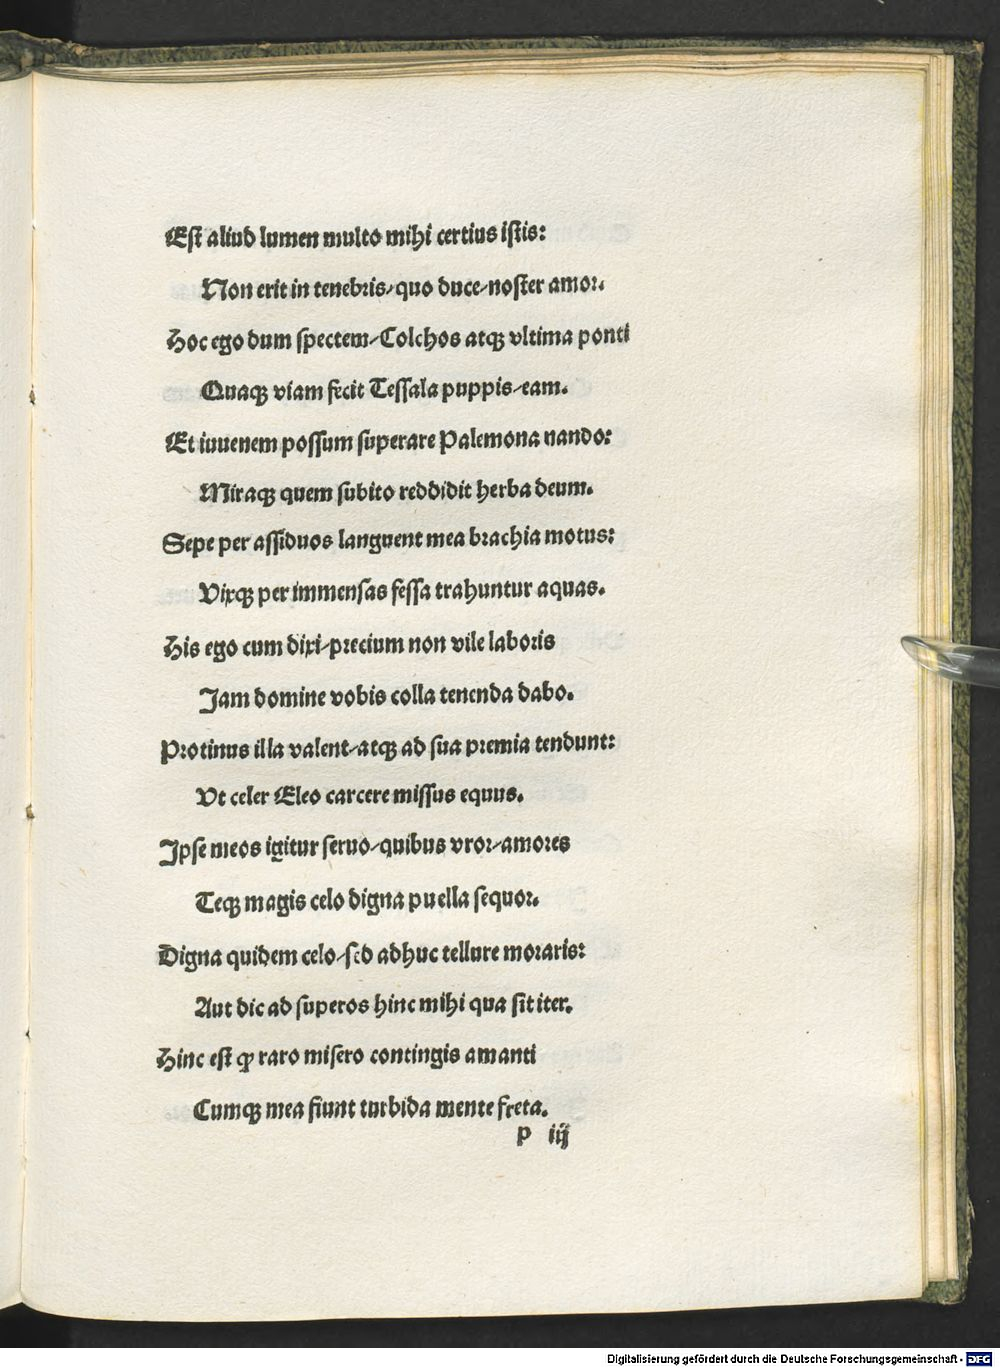 Est aliud lumen multo mihi certius istis:
Non erit in tenebris/quo duce/noster amor.
Hoc ego dum spectem/Colchos atqꝫ vltima ponti
Quaqꝫ viam fecit Tessala puppis/eam.
Et iuuenem possum superare Palemona nando:
Miraqꝫ quem subito reddidit herba deum.
Sepe per assiduos languent mea brachia motus:
Vixqꝫ per immensas fessa trahuntur aquas.
His ego cum dixi/precium non vile laboris
Jam domine vobis colla tenenda dabo.
Protinus illa valent/atqꝫ ad sua premia tendunt:
Vt celer Eleo carcere missus equus.
Ipse meos igitur seruo/quibus vror/amores
Teqꝫ magis celo digna puella sequor.
Digna quidem celo/sed adhuc tellure moraris:
Aut dic ad superos hinc mihi qua sit iter.
Hinc est ꝙ raro misero contingis amanti
Cumqꝫ mea fiunt turbida mente freta.
p iij
Digitalisierung gefördert durch die Deutsche Forschungsgemeinschaft - DFG